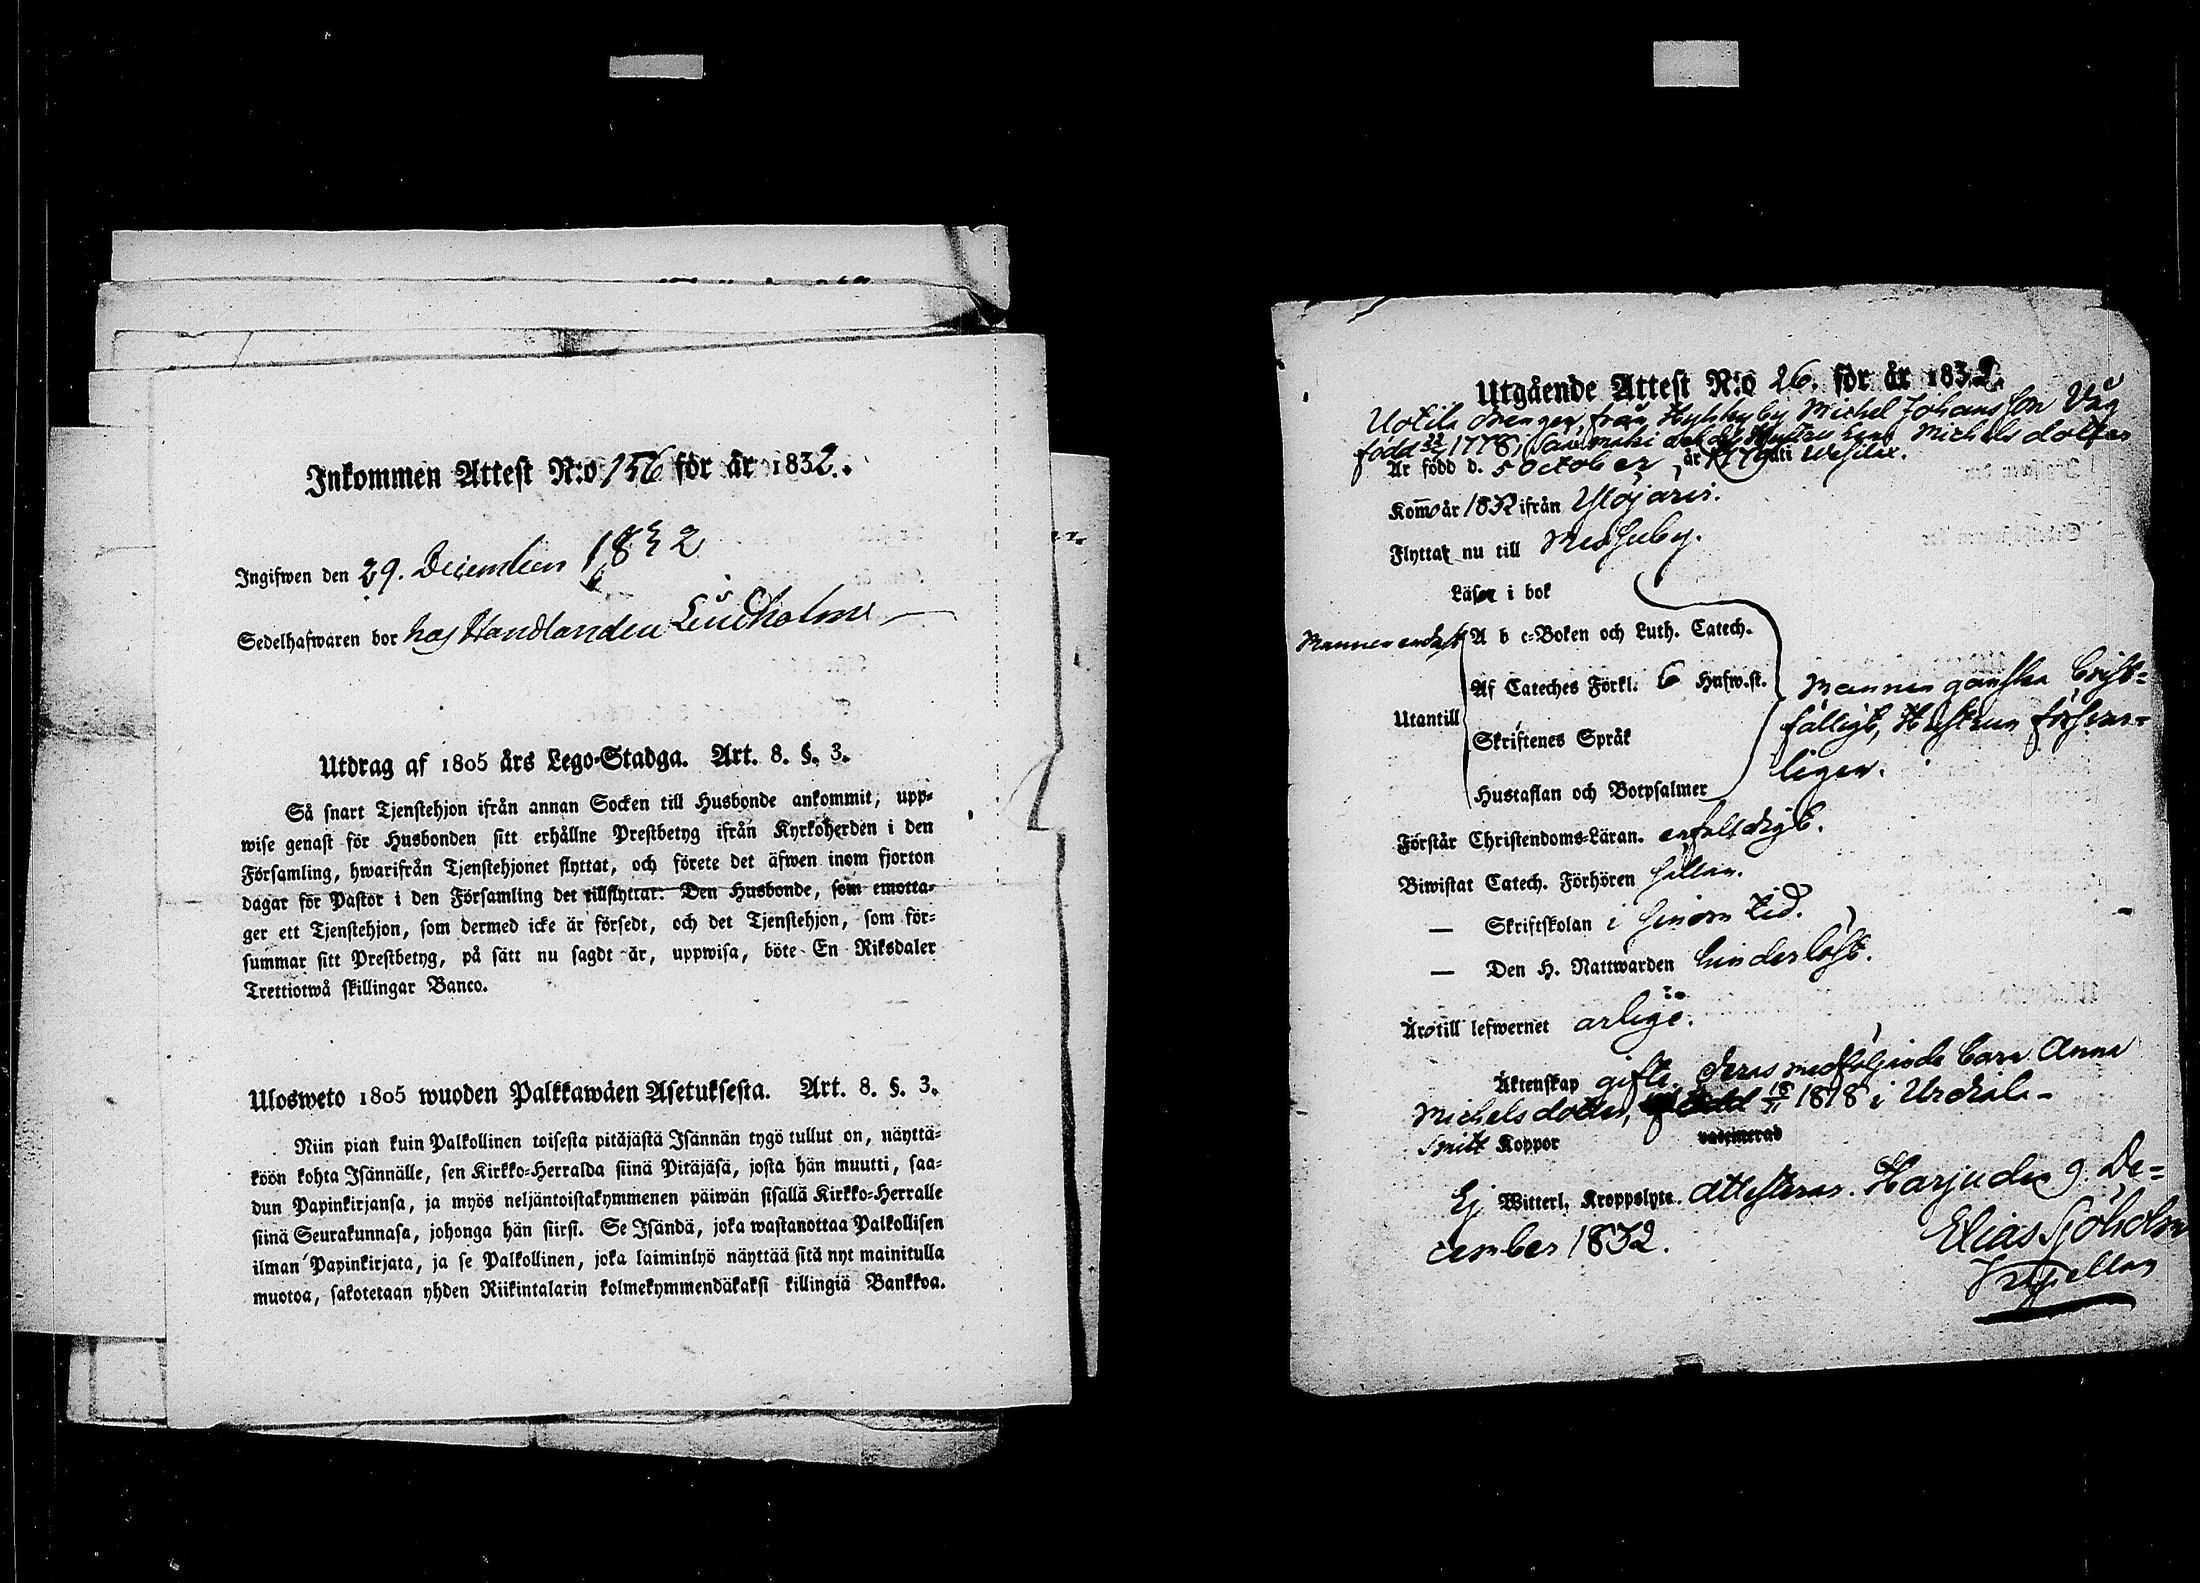 Inkommen Attest N:o 156 för år 1832.
Ingifwen den 29. December 1832
Sedelhafwaren bor hos Handlanden Lindholm
Utdrag af 1805 års Lego-Stadga. Art. 8. §. 3.
Så snart Tjenstehjon ifrån annan Socken till Husbonde ankommit, upp-
wise genast för Husbonden sitt erhållne Prestbetyg ifrån Kyrkoherden i den
Församling, hwarifrån Tjenstehjonet flyttat, och förete det äfwen inom fjorton
dagar för Pastor i den Församling det tillflyttar. Den Husbonde, som emotta-
ger ett Tjenstehjon, som dermed icke är försedt, och det Tjenstehjon, som för-
summar sitt Prestbetyg, på sätt nu sagdt är, uppwisa, böte En Riksdaler
Trettiotwå skillingar Banco.
Ulosweto 1805 wuoden Palkkawäen Asetuksesta. Art. 8. §. 3.
Niin pian kuin Palkollinen toisesta pitäjästä Isännän tygö tullut on, näyttä-
köön kohta Isännälle, sen Kirkko-Herralda siinä Pitäjäsä, josta hän muutti, saa-
dun Papinkirjansa, ja myös neljäntoistakymmenen päiwän sisällä Kirkko-Herralle
siinä Seurakunnasa, johonga hän siirsi. Se Isändä, joka wastanottaa Palkollisen
ilman Papinkirjata, ja se Palkollinen, joka laiminlyö näyttää sitä nyt mainitulla
muotoa, sakotetaan yhden Riikintalarin kolmekymmendäkaksi killingiä Bankkoa.
Utgående Attest N:o 26. för år 1832.
Uotila Drengen från Hyhky by Michel Johansson
född 1778 i Michelsdotter
Är född d. 5 October år 1779 uti Wesilax.
Kommo år 1832 ifrån Ylöjärvi.
Flyttat nu till Messuby.
Läser i bok
Mannen endast A b c-Boken och Luth. Catech.
Af Cateches Förkl. 6 Hufw.st.
Mannen ganska brist-
Utantill
fälligt, Hustrun försvar-
Skriftenes Språk
ligen.
Hustaflan och Botpsalmer
Förstår Christendoms-Läran. enfaldigt.
Biwistat Catech. Förhören sällan.
— Skriftskolan i sinom tid.
— Den H. Nattwarden hinderlöst.
Äro till lefwernet ärlige.
Äktenskap gifte. deras medföljande barn Anna
Michelsdotter, född 18/11 1818 i Urdiala -
Smitt Koppor vaccinerad
Ej Witterl. Kroppslyte. attesterar. Harju den 9. De-
cember 1832.
Elias Sjöholm
Capellan